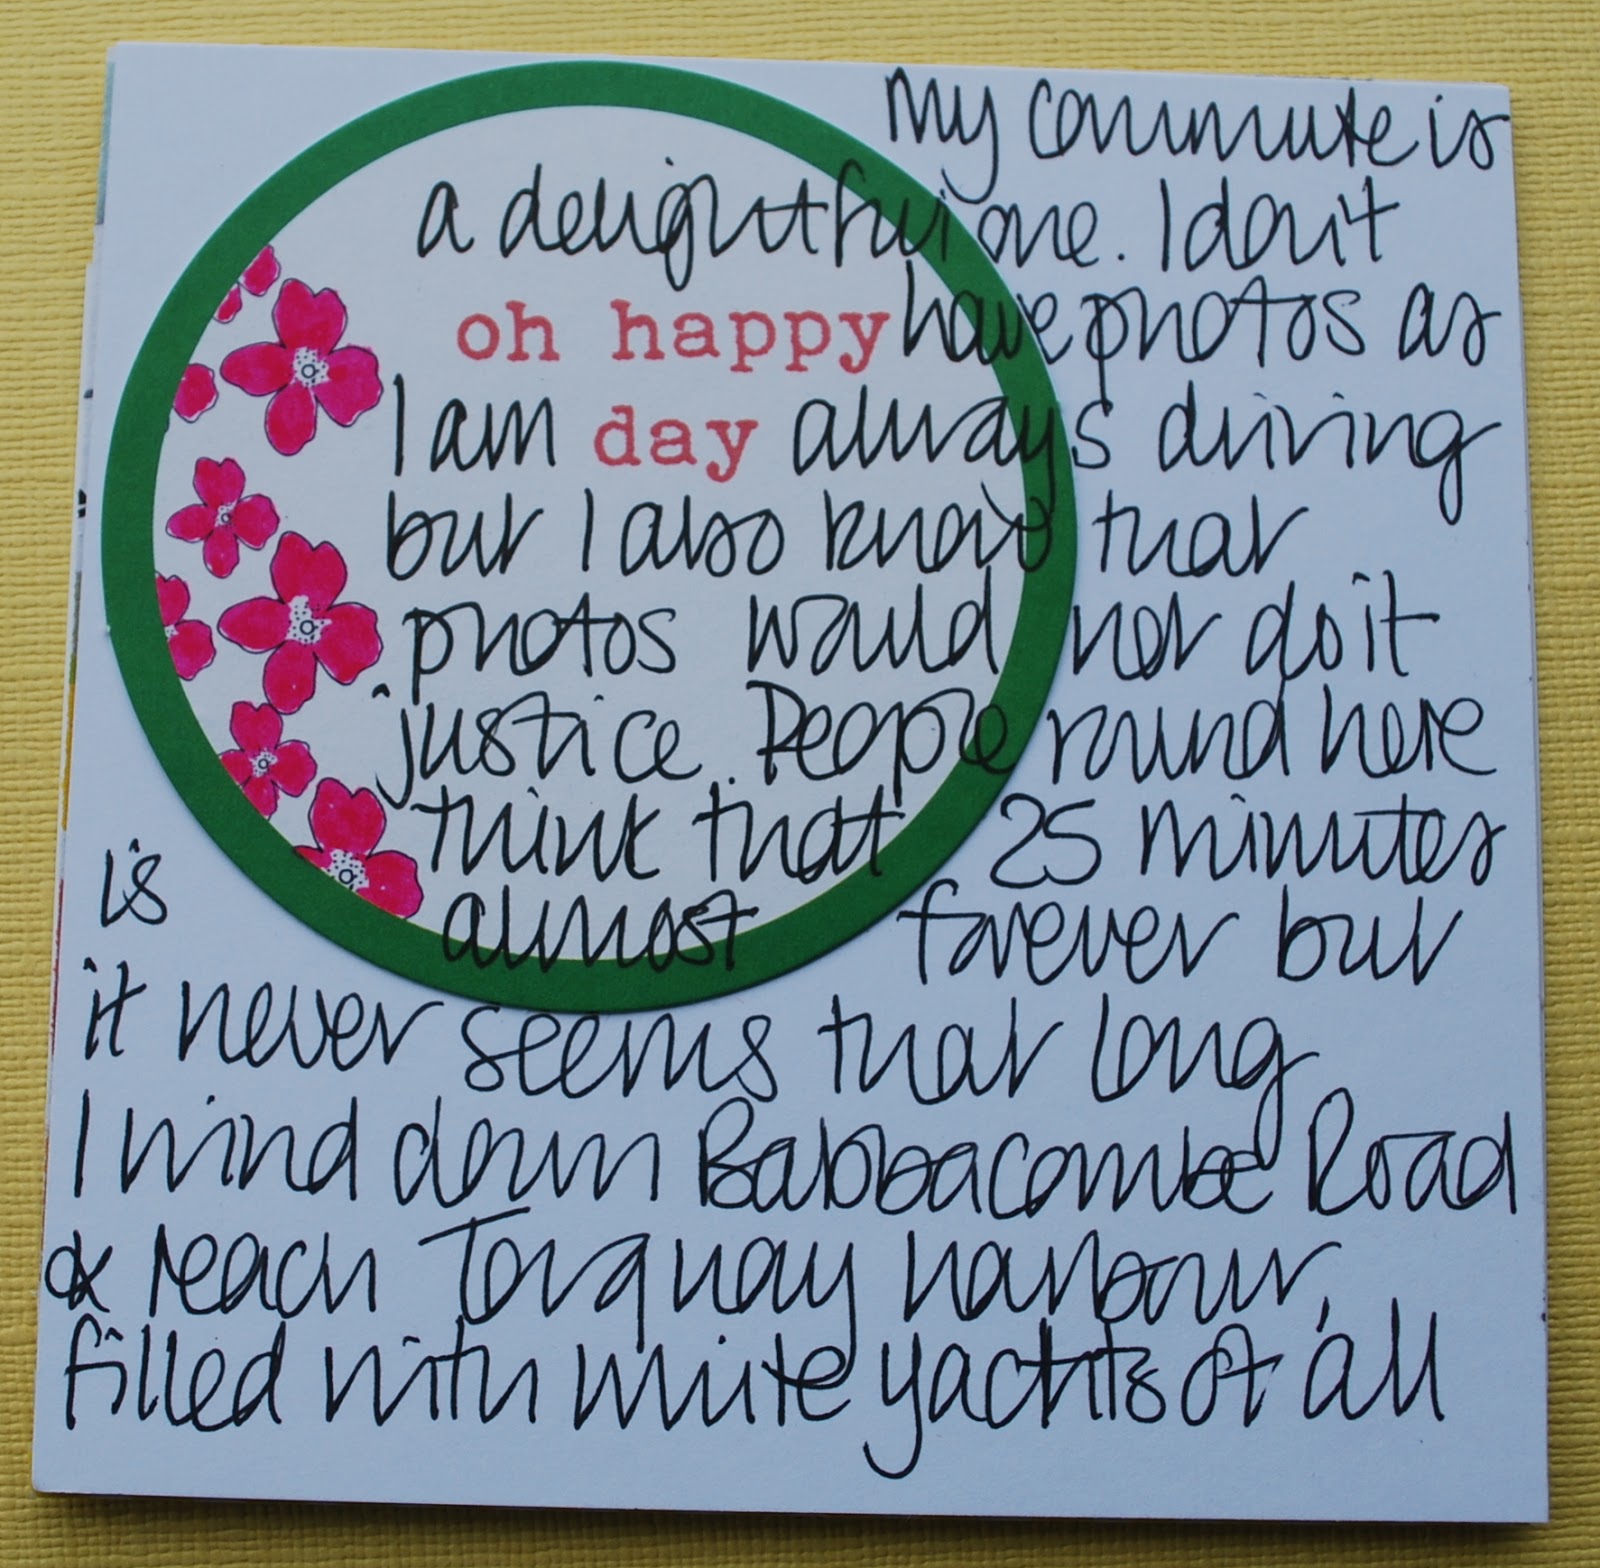 My commute is
a delightful one. I don't
oh happy have photos as
I am day always driving
but I also know that
photos would not do it
justice. People round here
think that 25 minutes
is almost forever but
it never seems that long
I wind down Babbacombe Road
& reach Torquay harbour,
filled with white yachts of all